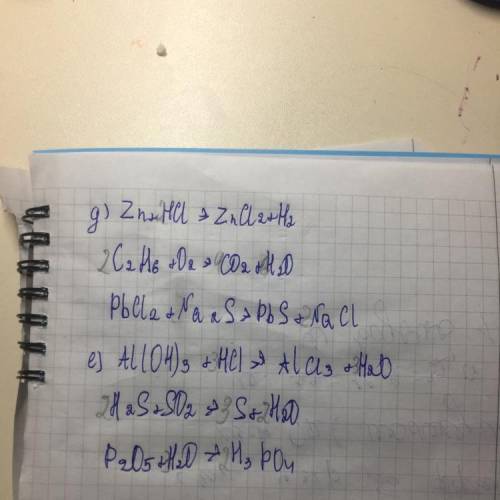 д) Zn+HCl → ZnCl2+H2
2C2H6+O2 → 4CO2+H2O
PbCl2+Na2S → PbS+2NaCl
е) Al(OH)3+3HCl → AlCl3+3H2O
2H2S+SO2 → 3S+2H2O
P2O5+3H2O → 2H3PO4